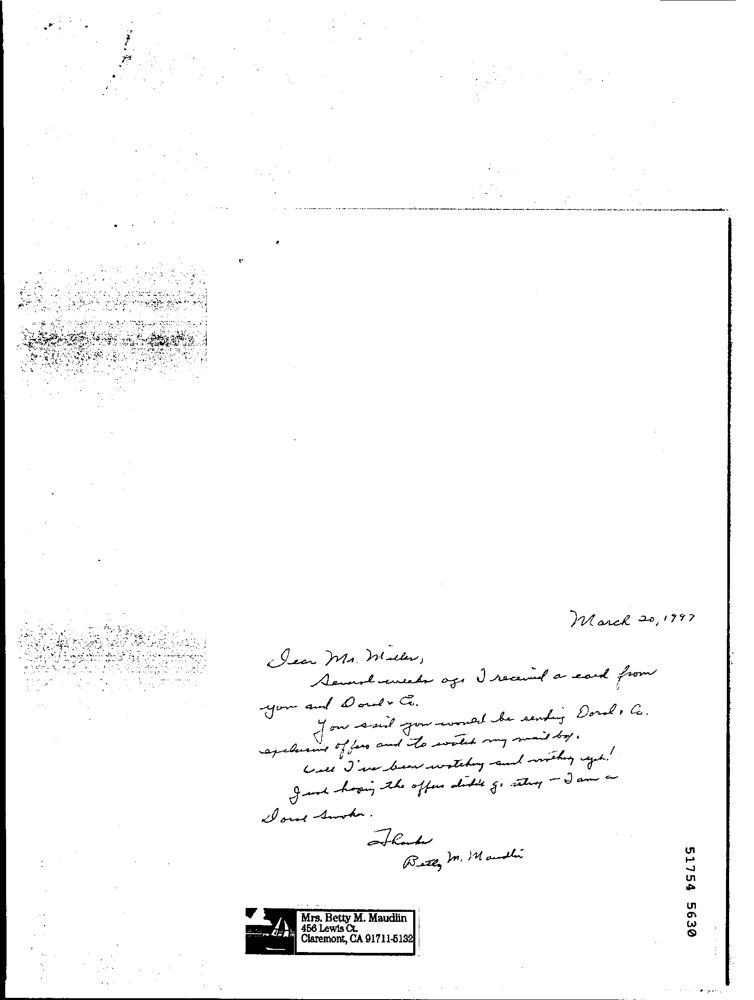 March 20, 1997
Dear Mr. Miller,
Several weeks ago I received a card from
you and Doral & Co.
You said you would be sending Doral & Co.
exclusive offers and to watch my mail box.
Well I've been watching and nothing yet!
Just hoping the offers didn't go astray - I am a
Doral Smoker.
Thanks
Betty M. Maudlin
Mrs. Betty M. Maudlin
456 Lewis Ct.
Claremont, CA 91711-5132
51754 5630